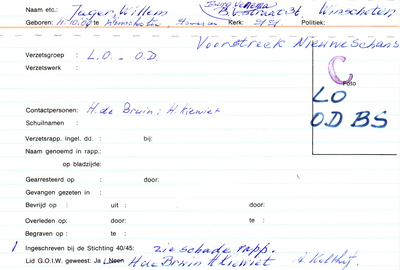 Naam etc.: Jager, Willem Burg Venema B.V. straat 36 Winschoten
Geboren: 11.10.09 te Winschoten Kerk: Politiek:
Voorstreek Nieuweschans
Verzetsgroep : L.O. - O.D.
Verzetswerk :
C
Foto
LO
OD BS
Contactpersonen: H. de Bruin; H. Kiewiet
Schuilnaam :
Verzetsrapp. ingel. dd. : bij:
Naam genoemd in rapp.:
op bladzijde:
Gearresteerd op : door:
Gevangen gezeten in :
Bevrijd op : uit : door:
Overleden op : door: te :
Begraven op : te :
1 Ingeschreven bij de Stichting 40/45: zie schade rapp.
Lid G.O.I.W. geweest: Ja / Neen H de Bruin H Kiewiet